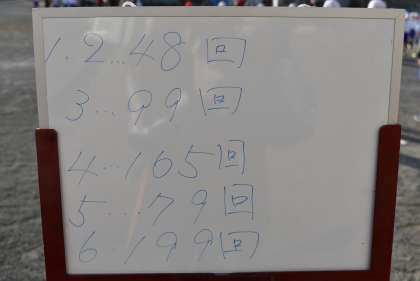 1.2...48回
3...99回
4...165回
5...79回
6.199回